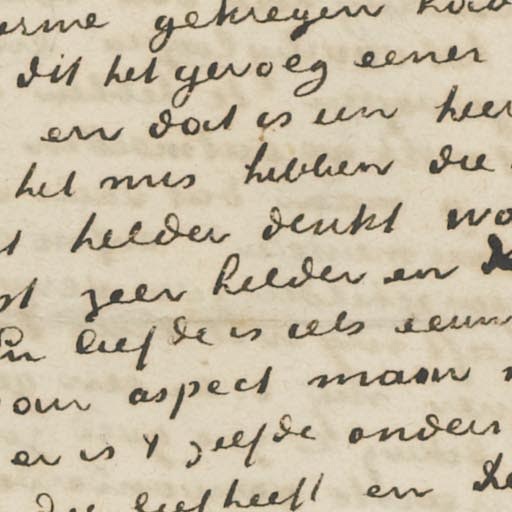 gekregen
dit het gevoeg eener
en dat is een heer
het mis hebben die
helder denkt wo
zeer helder en
liefde is iets eeuw
our aspect maar
er is 't zelfde onders
die lief heeft en